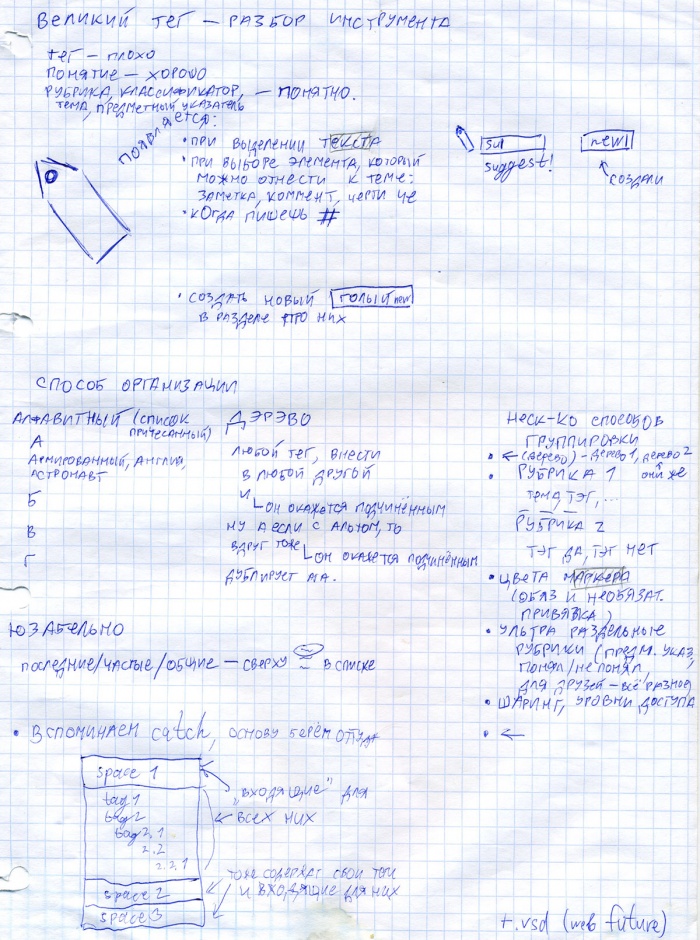 ВЕЛИКИЙ ТЕГ — РАЗБОР ИНСТРУМЕНТА
ТЕГ — ПЛОХО
ПОНЯТИЕ — ХОРОШО
РУБРИКА, КЛАССИФИКАТОР, — ПОНЯТНО.
ТЕМА, ПРЕДМЕТНЫЙ УКАЗАТЕЛЬ
ПОЯВЛЯЕТСЯ:
• ПРИ ВЫДЕЛЕНИИ ТЕКСТА
• ПРИ ВЫБОРЕ ЭЛЕМЕНТА, КОТОРЫЙ
МОЖНО ОТНЕСТИ К ТЕМЕ:
ЗАМЕТКА, КОММЕНТ, ЧЕРТИ ЧЕ
• КОГДА ПИШЕШЬ #
sul
suggest!
new
СОЗДАЛИ
• СОЗДАТЬ НОВЫЙ ГОЛЫЙ new
В РАЗДЕЛЕ ПРО НИХ
СПОСОБ ОРГАНИЗАЦИИ
АЛФАВИТНЫЙ (СПИСОК
ПРИЧЕСАННЫЙ)
А
АРМИРОВАННЫЙ, АНГЛИЯ,
АСТРОНАВТ
Б
В
Г
ДЭРЭВО
ЛЮБОЙ ТЕГ, ВНЕСТИ
В ЛЮБОЙ ДРУГОЙ
И
ОН ОКАЖЕТСЯ ПОДЧИНЁННЫМ
НУ А ЕСЛИ С АЛЬТОМ, ТО
ВДРУГ ТОЖЕ
ОН ОКАЖЕТСЯ ПОДЧИНЁННЫМ
ДУБЛИРУЕТ МА.
НЕСК-КО СПОСОБОВ
ГРУППИРОВКИ
• ← (ДЕРЕВО) – ДЕРЕВО 1, ДЕРЕВО 2
ОНИ ЖЕ
• РУБРИКА 1
ТЕМА, ТЭГ, ...
РУБРИКА 2
ТЭГ ДА, ТЭГ НЕТ
• ЦВЕТА МАРКЕРА
(ОБЯЗ И НЕОБЯЗАТ.
ПРИВЯЗКА)
• УЛЬТРА РАЗДЕЛЬНЫЕ
РУБРИКИ (ПРЕДМ. УКАЗ,
ПОНЯЛ/НЕ ПОНЯЛ,
ДЛЯ ДРУЗЕЙ – ВСЁ РАЗНОЕ
• ШАРИНГ, УРОВНИ ДОСТУПА
• ←
ЮЗАБЕЛЬНО
ПОСЛЕДНИЕ/ЧАСТЫЕ/ОБЩИЕ — СВЕРХУ В СПИСКЕ
• ВСПОМИНАЕМ catch, ОСНОВУ БЕРЁМ ОТТУДА
space 1
tag 1
tag 2
tag 2.1
2.2
2.2.1
space 2
space 3
„ВХОДЯЩИЕ" ДЛЯ
ВСЕХ НИХ
ТОЖЕ СОДЕРЖАТ СВОИ ТЕГИ
И ВХОДЯЩИЕ ДЛЯ НИХ
+.vsd (web future)